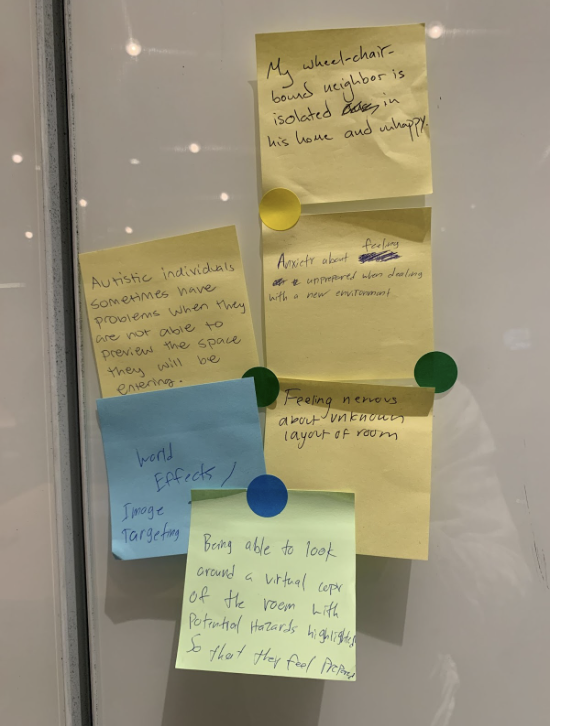 My wheel-chair-
bound neighbor is
isolated in
his home and unhappy.
Anxiety about feeling
unprepared when dealing
with a new environment.
Autistic individuals
sometimes have
problems when they
are not able to
preview the space
they will be
entering.
Feeling nervous
about unknown
layout of room
World
Effects /
Image
Targeting
Being able to look
around a virtual copy
of the room with
Potential Hazards highlighted
So that they feel Prepare